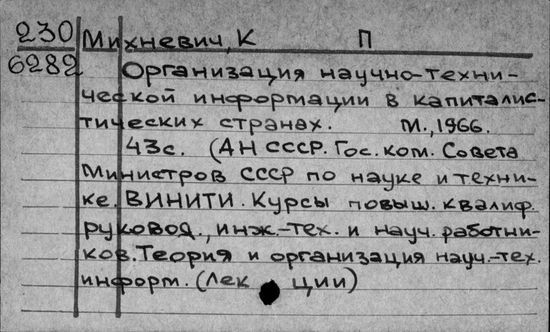 230 Михневич, К П
6282 Организация научно-техни-
ческой информации в капиталис-
тических странах. М., 1966.
43с. (АН СССР. Гос. ком. Совета
Министров СССР по науке и техни-
ке. ВИНИТИ. Курсы повыш. квалиф.
руковод., инж.-тех. и науч. работни-
ков. Теория и организация науч.-тех.
информ. (Лек ции)